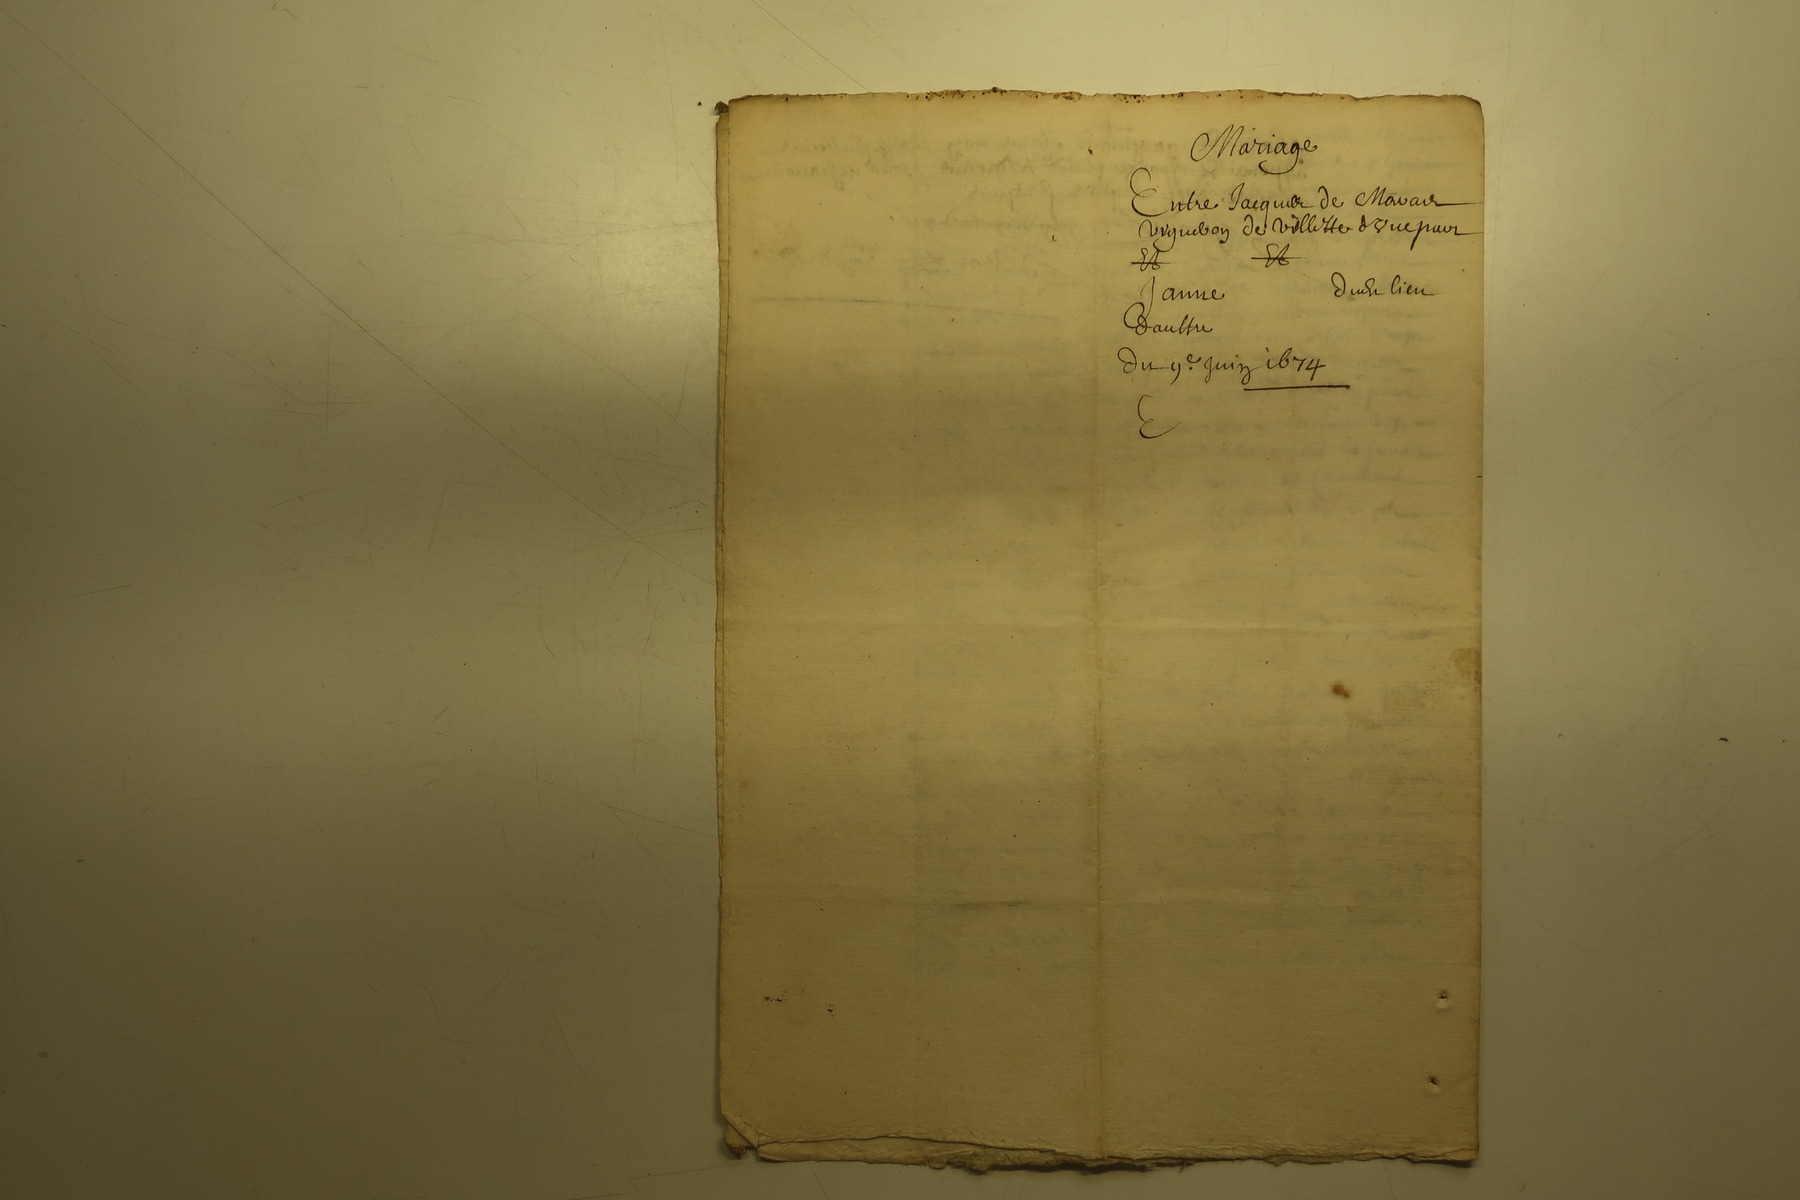 Mariage
Entre Jacques de Mavair
vigneron de villette d'une part
Et Et
Janne dudit lieu
Daultre
du 9e Juin 1674
E